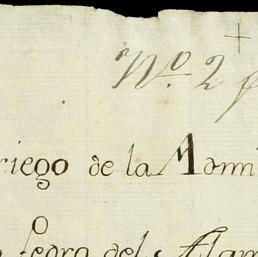 Nº. 2
riego de la Admi
Pedro del Alam